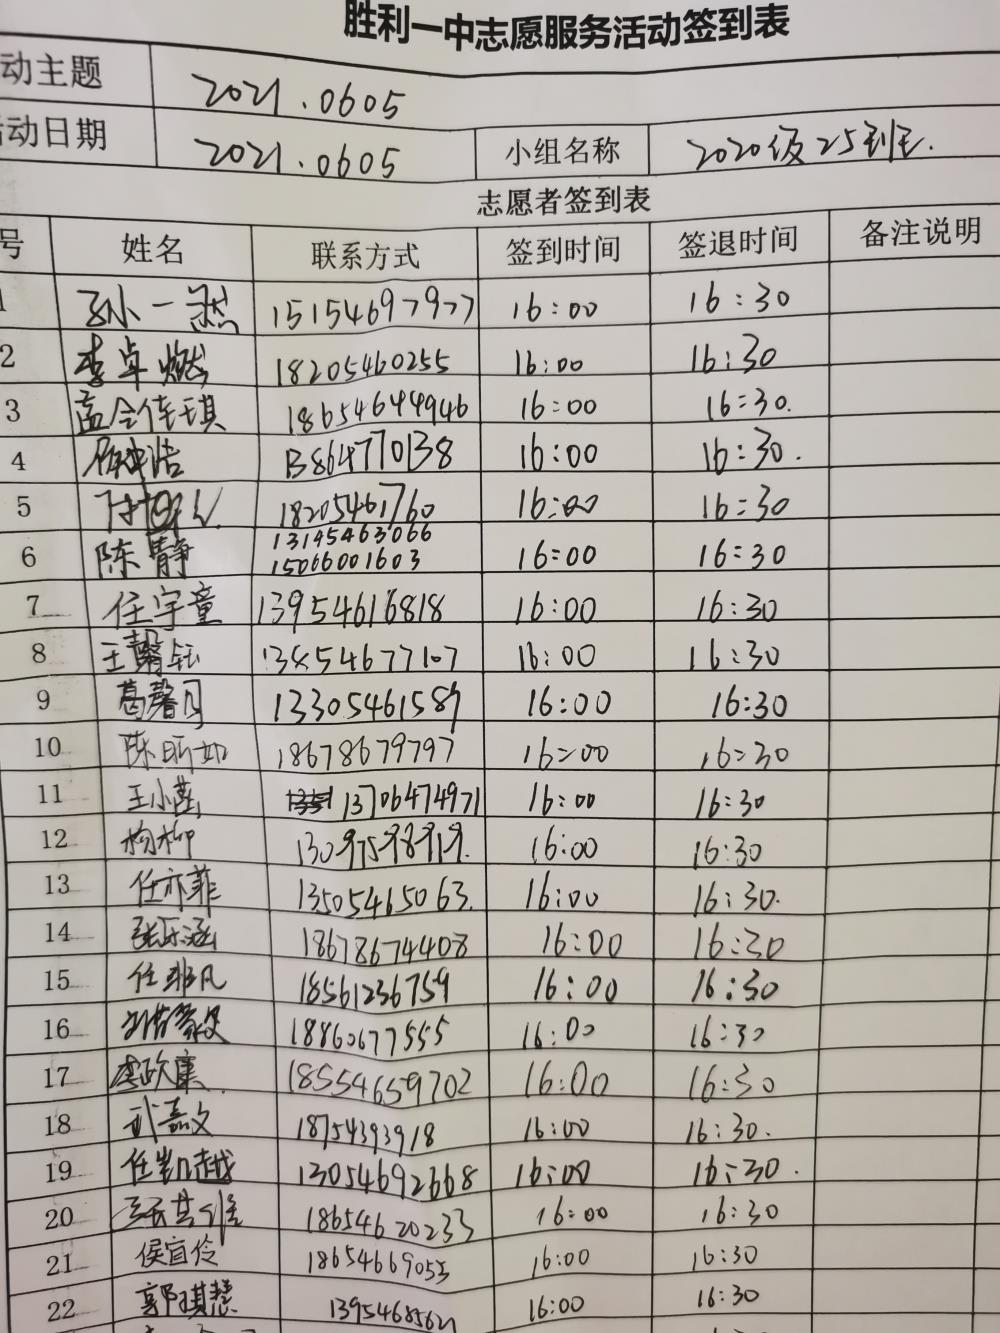 胜利一中志愿服务活动签到表
动主题 2021.0605
动日期 2021.0605 小组名称 2020级25班.
志愿者签到表
号 姓名 联系方式 签到时间 签退时间 备注说明
1 孙一然 15154697977 16:00 16:30
2 李卓燃 18205460255 16:00 16:30
3 孟令佳琪 18654644946 16:00 16:30.
4 13864770138 16:00 16:30.
5 18205461760 16:00 16:30
13145463066
6 陈静 15066001603 16:00 16:30
7 任宇童 13954616818 16:00 16:30
8 王馨钰 16:00 16:30
9 葛馨月 13305461589 16:00 16:30
10 陈昕如 18678679797 16:00 16:30
11 王小菡 13706474971 16:00 16:30
12 杨柳 16:00 16:30
13 任亦菲 13505465063. 16:00 16:30.
14 张乐涵 18678674408 16:00 16:30
15 任非凡 18561236759 16:00 16:30
16 18860677555 16:00 16:30
17 李政寰 18554659702 16:00 16:30
18 武嘉文 18754393918 16:00 16:30.
19 任凯越 13054692668 16:00 16:30.
20 18654620233 16:00 16:30
21 侯宣伶 18654669053 16:00 16:30
22 郭琪慧 16:00 16:30